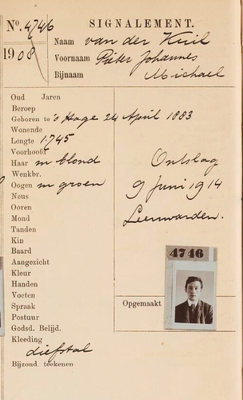 No. 4746 SIGNALEMENT.
1908 Naam van der Kuil
Voornaam Pieter Johannes
Bijnaam Michael
Oud Jaren
Beroep
Geboren te 's Hage 24 April 1883
Wonende
Lengte 1.745
Voorhoofd
Haar m blond Ontslag
Wenkbr.
Oogen m groen 9 Juni 1914
Neus
Ooren Leeuwarden.
Mond
Tanden
Kin
Baard
Aangezicht 4746
Kleur
Handen
Voeten
Spraak Opgemaakt
Postuur
Godsd. Belijd.
Kleeding
diefstal
Bijzond. teekenen